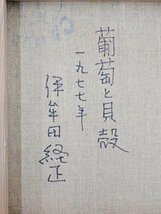 葡萄と貝殻
一九七七年
伊牟田経正